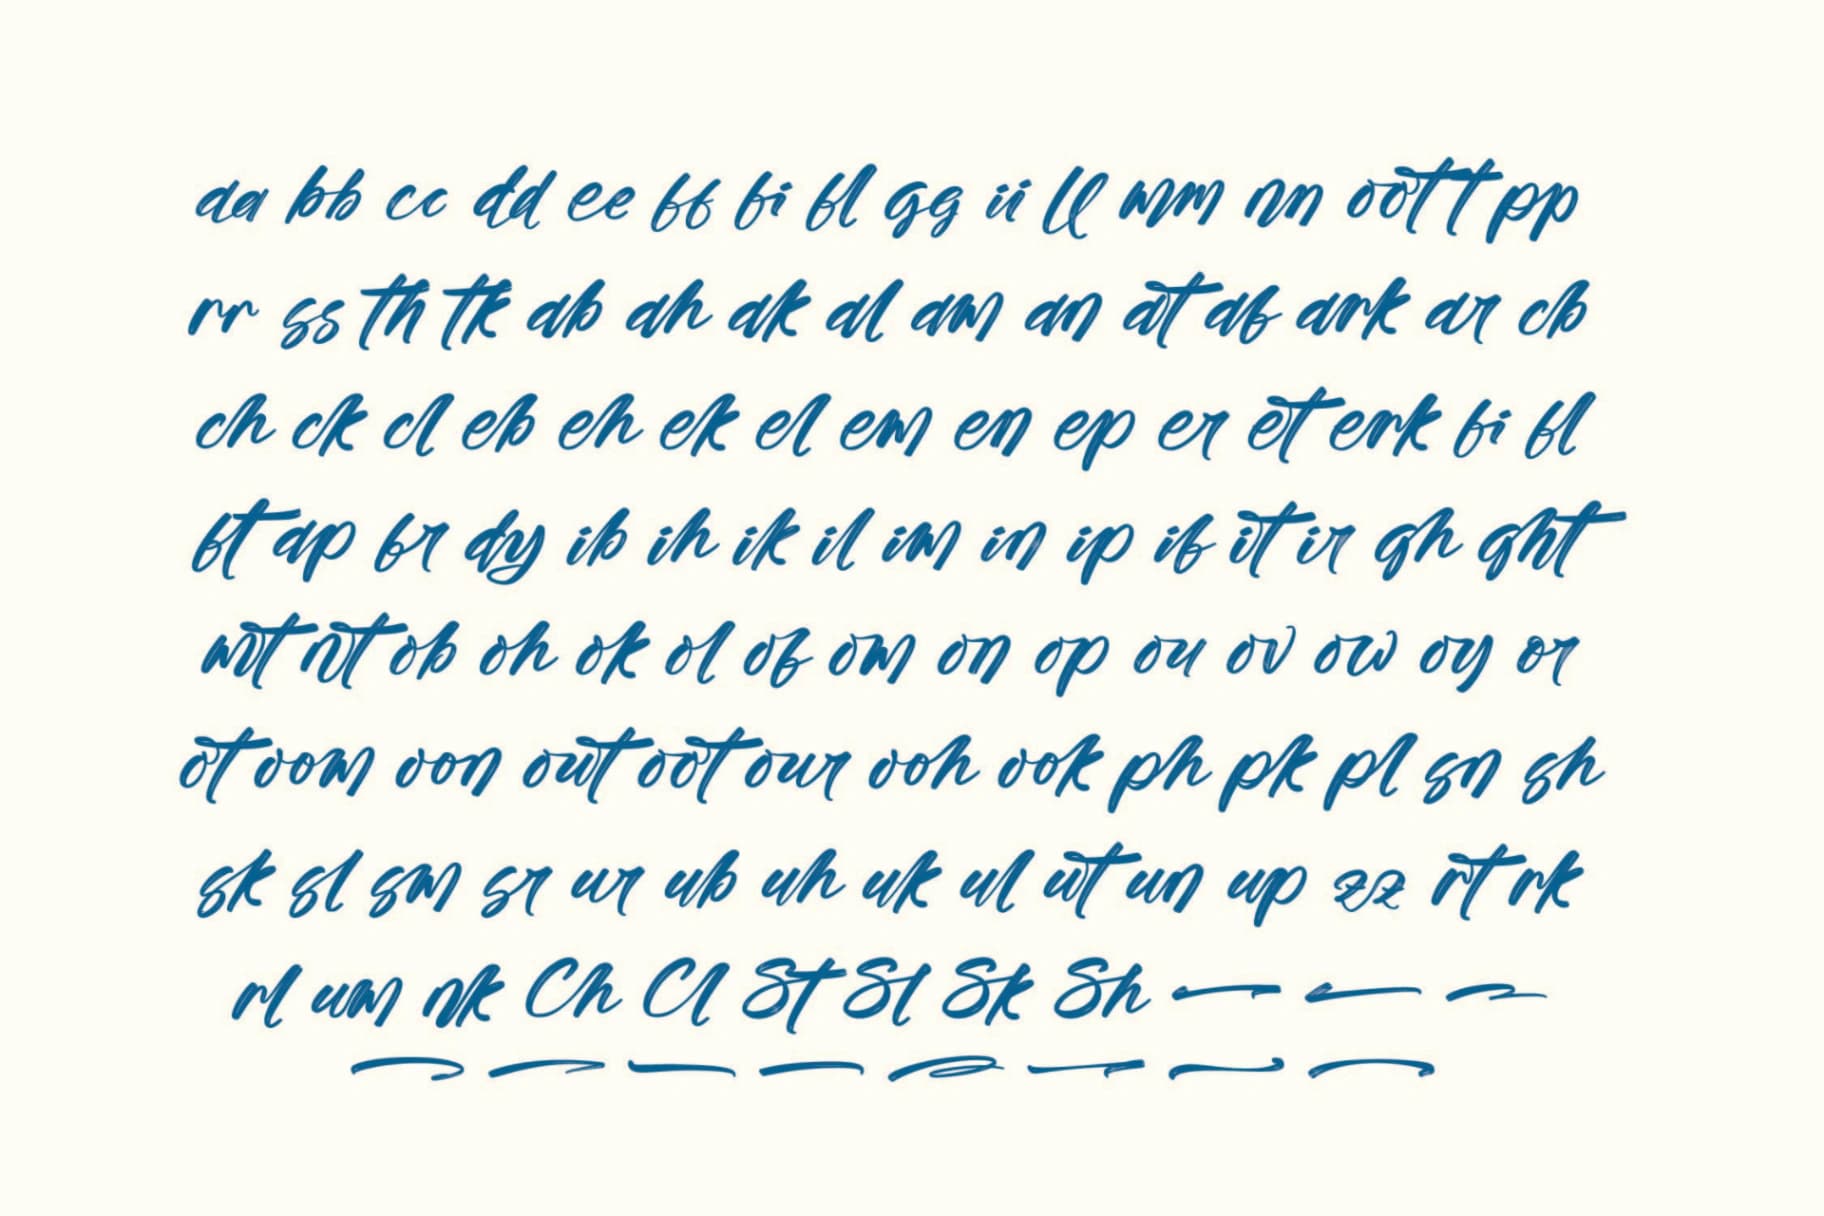 aa bb cc dd ee ff fi fl gg ii ll mm nn oot t pp
rr ss th tk ab ah ak al am an at af ark ar cb
ch ck cl eb eh ek el em en ep er et erk fi fl
ft ap fr dy ib ih ik il im in ip if it ir gh ght
mt nt ob oh ok ol of om on op ou ov ow oy or
ot oom oon out oot our ooh ook ph pk pl sn sh
sk sl sm sr ur ub uh uk ul ut un up zz rt rk
rl um nk Ch Cl St Sl Sk Sh